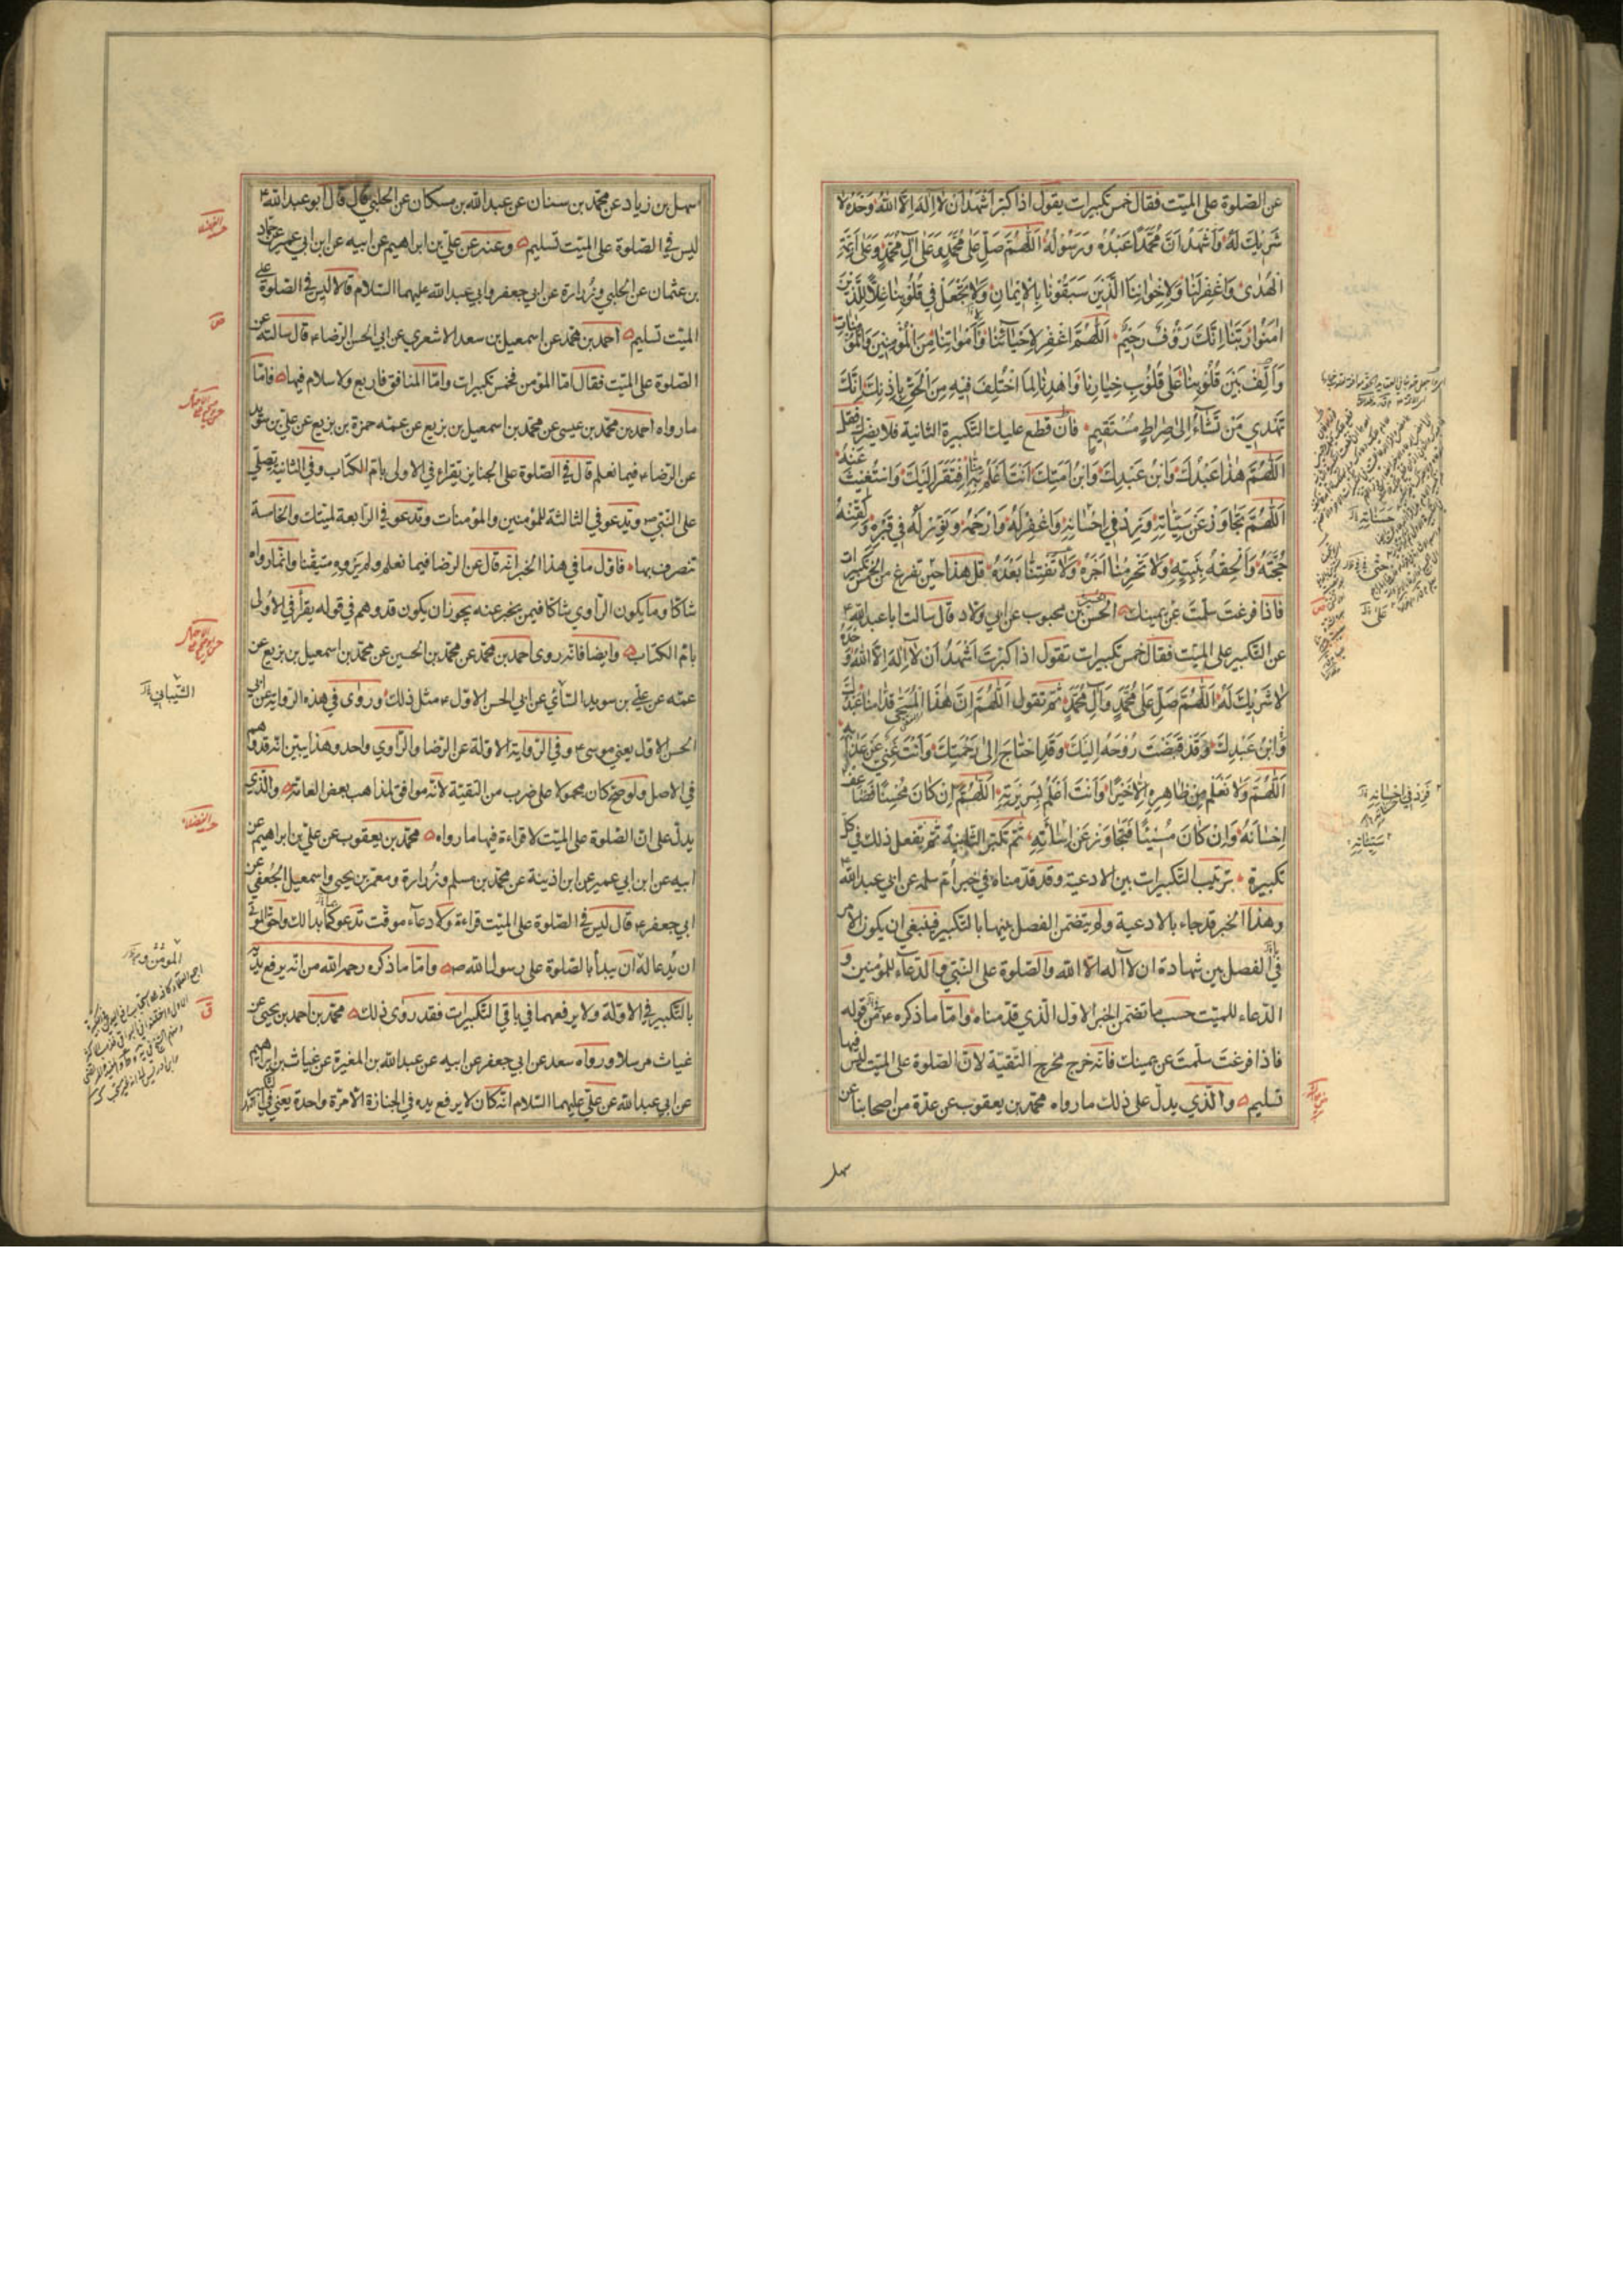 عن الصلوة على الميت فقال خمس تكبيرات يقول اذا كبر اشهد ان لا اله الا الله وحده لا
شريك له واشهد ان محمدا عبده ورسوله اللهم صل على محمد وعلى آل محمد وعلى ائمة
الهدى واغفر لنا ولاخواننا الذين سبقونا بالايمان ولا تجعل في قلوبنا غلا للذين
امنوا ربنا انك رؤف رحيم اللهم اغفر لاحيائنا وامواتنا من المؤمنين والمؤمنات
والف بين قلوبنا على قلوب خيارنا واهدنا لما اختلف فيه من الحق باذنك انك
تهدي من تشاء الى صراط مستقيم فان قطع عليك التكبيرة الثانية فلا يضرك فقل
اللهم هذا عبدك وابن عبدك وابن امتك انت اعلم به افتقر اليك واستغنيت عنه
اللهم تجاوز عن سيئاته وزد في احسانه واغفر له وارحمه ونور له في قبره ولقنه
حجته والحقه بنبيه ولا تحرمنا اجره ولا تفتنا بعده قل هذا حين تفرغ من الخمس تكبيرات
فاذا فرغت سلمت عن يمينك الحسن بن محبوب عن ابي ولاد قال سالت ابا عبد الله
عن التكبير على الميت فقال خمس تكبيرات تقول اذا كبرت اشهد ان لا اله الا الله وحده
لا شريك له اللهم صل على محمد وآل محمد ثم تقول اللهم ان هذا المسجى قدامنا عبدك
وابن عبدك وقد قبضت روحه اليك وقد احتاج الى رحمتك وانت غني عن عذابه
اللهم ولا نعلم من ظاهره الا خيرا وانت اعلم بسريرته اللهم ان كان محسنا فضاعف
احسانه وان كان مسيئا فتجاوز عن اساءته ثم تكبر الثانية ثم تفعل ذلك في كل
تكبيرة ترتيب التكبيرات بين الادعية وقد قدمناه في خبر ام سلمه عن ابي عبد الله
وهذا الخبر قد جاء بالادعية ولم يتضمن الفصل بينها بالتكبير فينبغي ان يكون الامر
في الفصل بين شهادة ان لا اله الا الله والصلوة على النبي والدعاء للمؤمنين و
الدعاء للميت حسب ما تضمن الخبر الاول الذي قدمناه واما ما ذكره من قوله
فاذا فرغت سلمت عن يمينك فانه خرج مخرج التقية لان الصلوة على الميت ليس فيها
تسليم والذي يدل على ذلك ما رواه محمد بن يعقوب عن عدة من اصحابنا عن
سهل
سهل بن زياد عن محمد بن سنان عن عبد الله بن مسكان عن الحلبي قال قال ابو عبد الله
ليس في الصلوة على الميت تسليم وعنه عن علي بن ابراهيم عن ابيه عن ابن ابي عمير عن حماد
بن عثمان عن الحلبي وزرارة عن ابي جعفر وابي عبد الله عليهما السلام قالا ليس في الصلوة على
الميت تسليم احمد بن محمد عن اسمعيل بن سعد الاشعري عن ابي الحسن الرضا قال سالته عن
الصلوة على الميت فقال اما المؤمن فخمس تكبيرات واما المنافق فاربع ولا سلام فيها فاما
ما رواه احمد بن محمد بن عيسى عن محمد بن اسمعيل بن بزيع عن عمه حمزة بن بزيع عن علي بن سويد
عن الرضا فيما نعلم قال في الصلوة على الجنايز يقراء في الاولى بام الكتاب وفي الثانية يصلي
على النبي ص وتدعو في الثالثة للمؤمنين والمؤمنات وتدعو في الرابعة لميتك والخامسة
تنصرف بها فاول ما في هذا الخبر انه قال عن الرضا فيما نعلم ولم يروه متيقنا وانما رواه
شاكا وما يكون الراوي شاكا فيمن يخبر عنه يجوز ان يكون قد وهم في قوله يقرأ في الاولى
بام الكتاب وايضا فانه روى احمد بن محمد عن محمد بن الحسين عن محمد بن اسمعيل بن بزيع عن
عمه عن علي بن سويد السائي عن ابي الحسن الاول مثل ذلك وروى في هذه الرواية عن ابي
الحسن الاول يعني موسى وفي الرواية الاولة عن الرضا والراوي واحد وهذا يبين انه قد وهم
في الاصل ولو صح كان محمولا على ضرب من التقية لانه موافق لمذاهب بعض العامة والذي
يدل على ان الصلوة على الميت لا قراءة فيها ما رواه محمد بن يعقوب عن علي بن ابراهيم عن
ابيه عن ابن ابي عمير عن ابن اذينة عن محمد بن مسلم وزرارة ومعمر بن يحيى واسمعيل الجعفي عن
ابي جعفر قال ليس في الصلوة على الميت قراءة ولا دعاء موقت تدعو كما بدا لك واحق الموتى
ان يدعا له ان يبدأ بالصلوة على رسول الله ص واما ما ذكره رحمه الله من انه يرفع يديه
بالتكبير في الاولة ولا يرفعهما في باقي التكبيرات فقد روى ذلك محمد بن احمد بن يحيى عن
غياث مرسلا ورواه سعد عن ابي جعفر عن ابيه عن عبد الله بن المغيرة عن غياث بن ابراهيم
عن ابي عبد الله عن علي عليهما السلام انه كان لا يرفع يده في الجنازة الا مرة واحدة يعني في التكبير